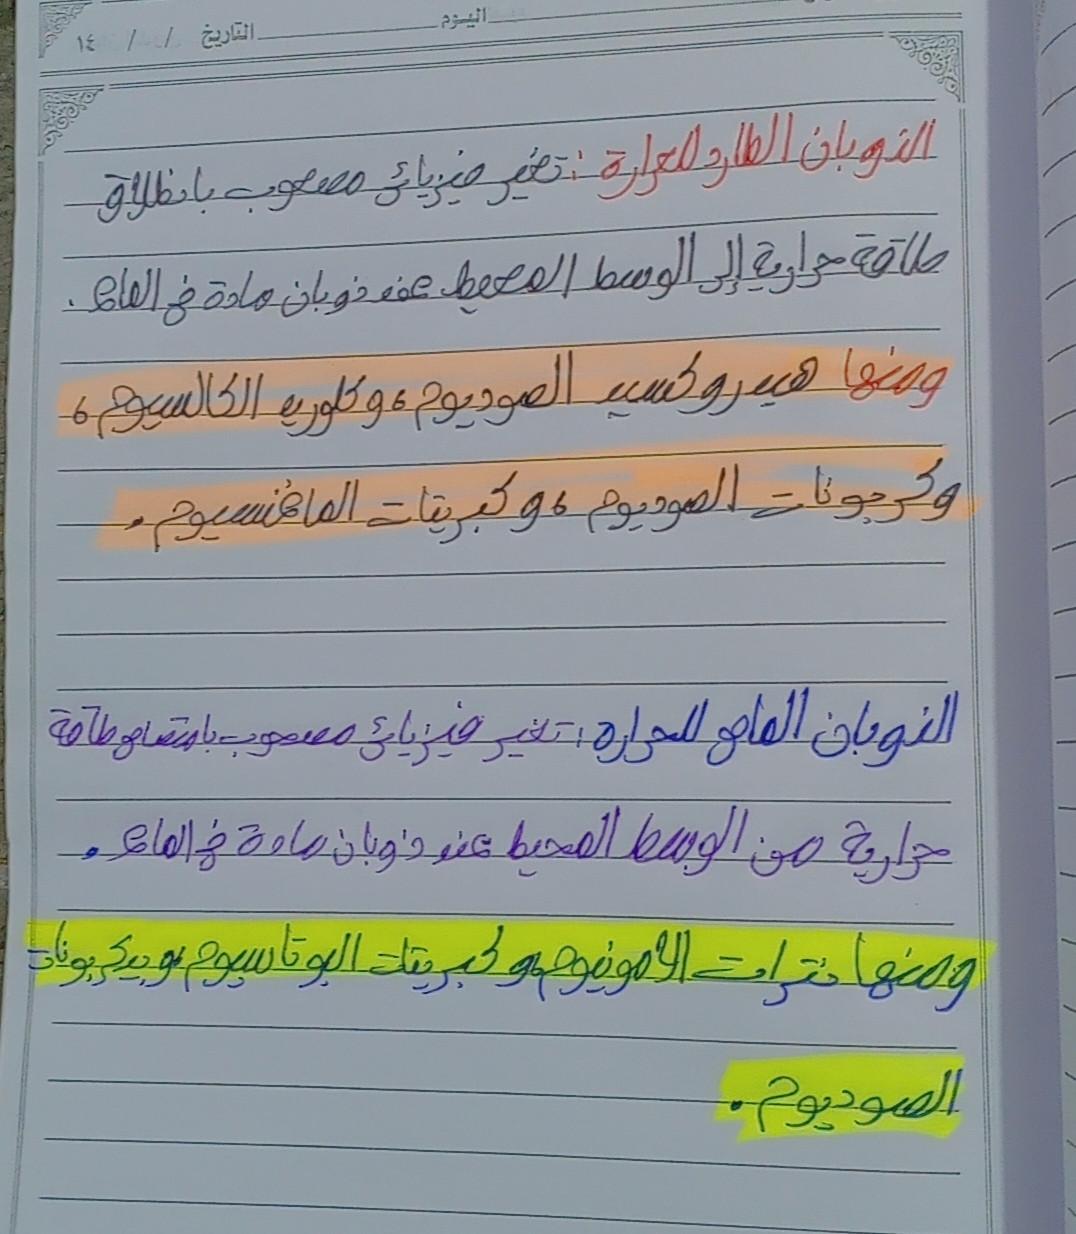 اليوم التاريخ / / ١٤
الذوبان الطارد للحرارة : تغير فيزيائي مصحوب بانطلاق
طاقة حرارية إلى الوسط المحيط عند ذوبان مادة في الماء .
ومنها هيدروكسيد الصوديوم ، وكلوريد الكالسيوم ،
وكربونات الصوديوم ، وكبريتات الماغنسيوم .
الذوبان الماص للحراره : تغير فيزيائي مصحوب بامتصاص طاقة
حرارية من الوسط المحيط عند ذوبان مادة في الماء .
ومنها نترات الأمونيوم ، وكبريتات البوتاسيوم ، وبيكربونات
الصوديوم .